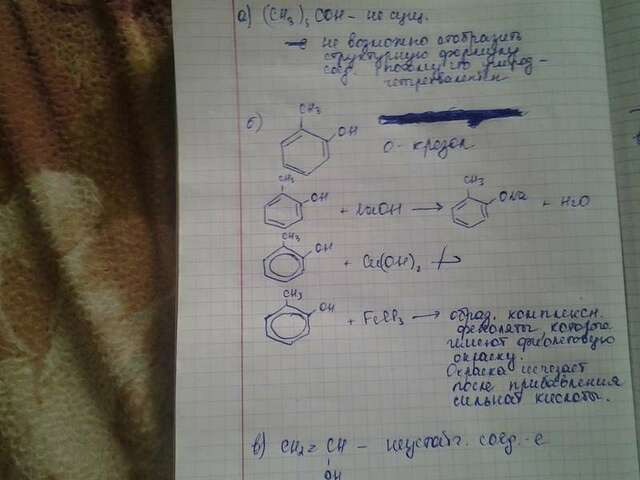 а) (CH₃)₃COH - не сущ.
→ не возможно отобразить
структурную формулу
соед. потому что углерод-
четрехвалентен
б)
CH₃
OH
О-крезол
CH₃
OH + NaOH → CH₃ ONa + H₂O
CH₃
OH + Cu(OH)₂
CH₃
OH + FeCl₃ → образ. комплексн.
феноляты, которые
имеют фиолетовую
окраску.
Окраска исчезает
после прибавления
сильной кислоты.
в) CH₂= CH - неустойч. соед.-е
OH